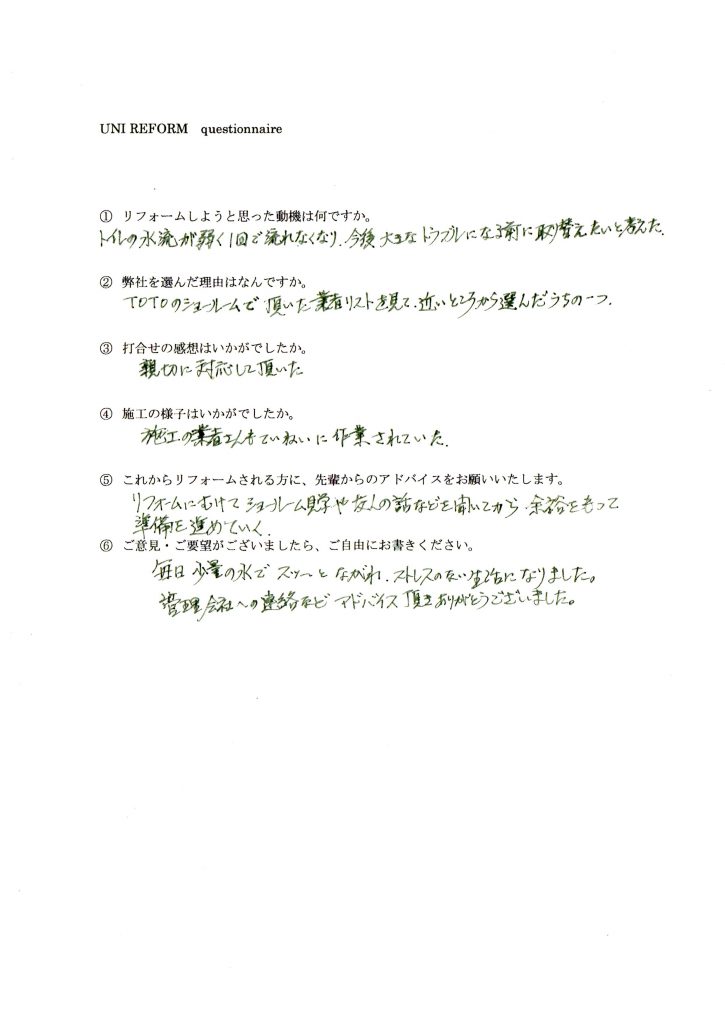 UNI REFORM questionnaire
① リフォームしようと思った動機は何ですか。
トイレの水流が弱く1回で流れなくなり、今後大きなトラブルになる前に取り替えたいと考えた。
② 弊社を選んだ理由はなんですか。
TOTOのショールームで頂いた業者リストを見て、近いところから選んだうちの一つ。
③ 打合せの感想はいかがでしたか。
親切に対応して頂いた
④ 施工の様子はいかがでしたか。
施工の業者さんもていねいに作業されていた。
⑤ これからリフォームされる方に、先輩からのアドバイスをお願いいたします。
リフォームにむけてショールーム見学や友人の話などを聞いてから、余裕をもって
準備を進めていく。
⑥ ご意見・ご要望がございましたら、ご自由にお書きください。
毎日少量の水でスッーとながれ、ストレスのない生活になりました。
管理会社への連絡などアドバイス頂きありがとうございました。